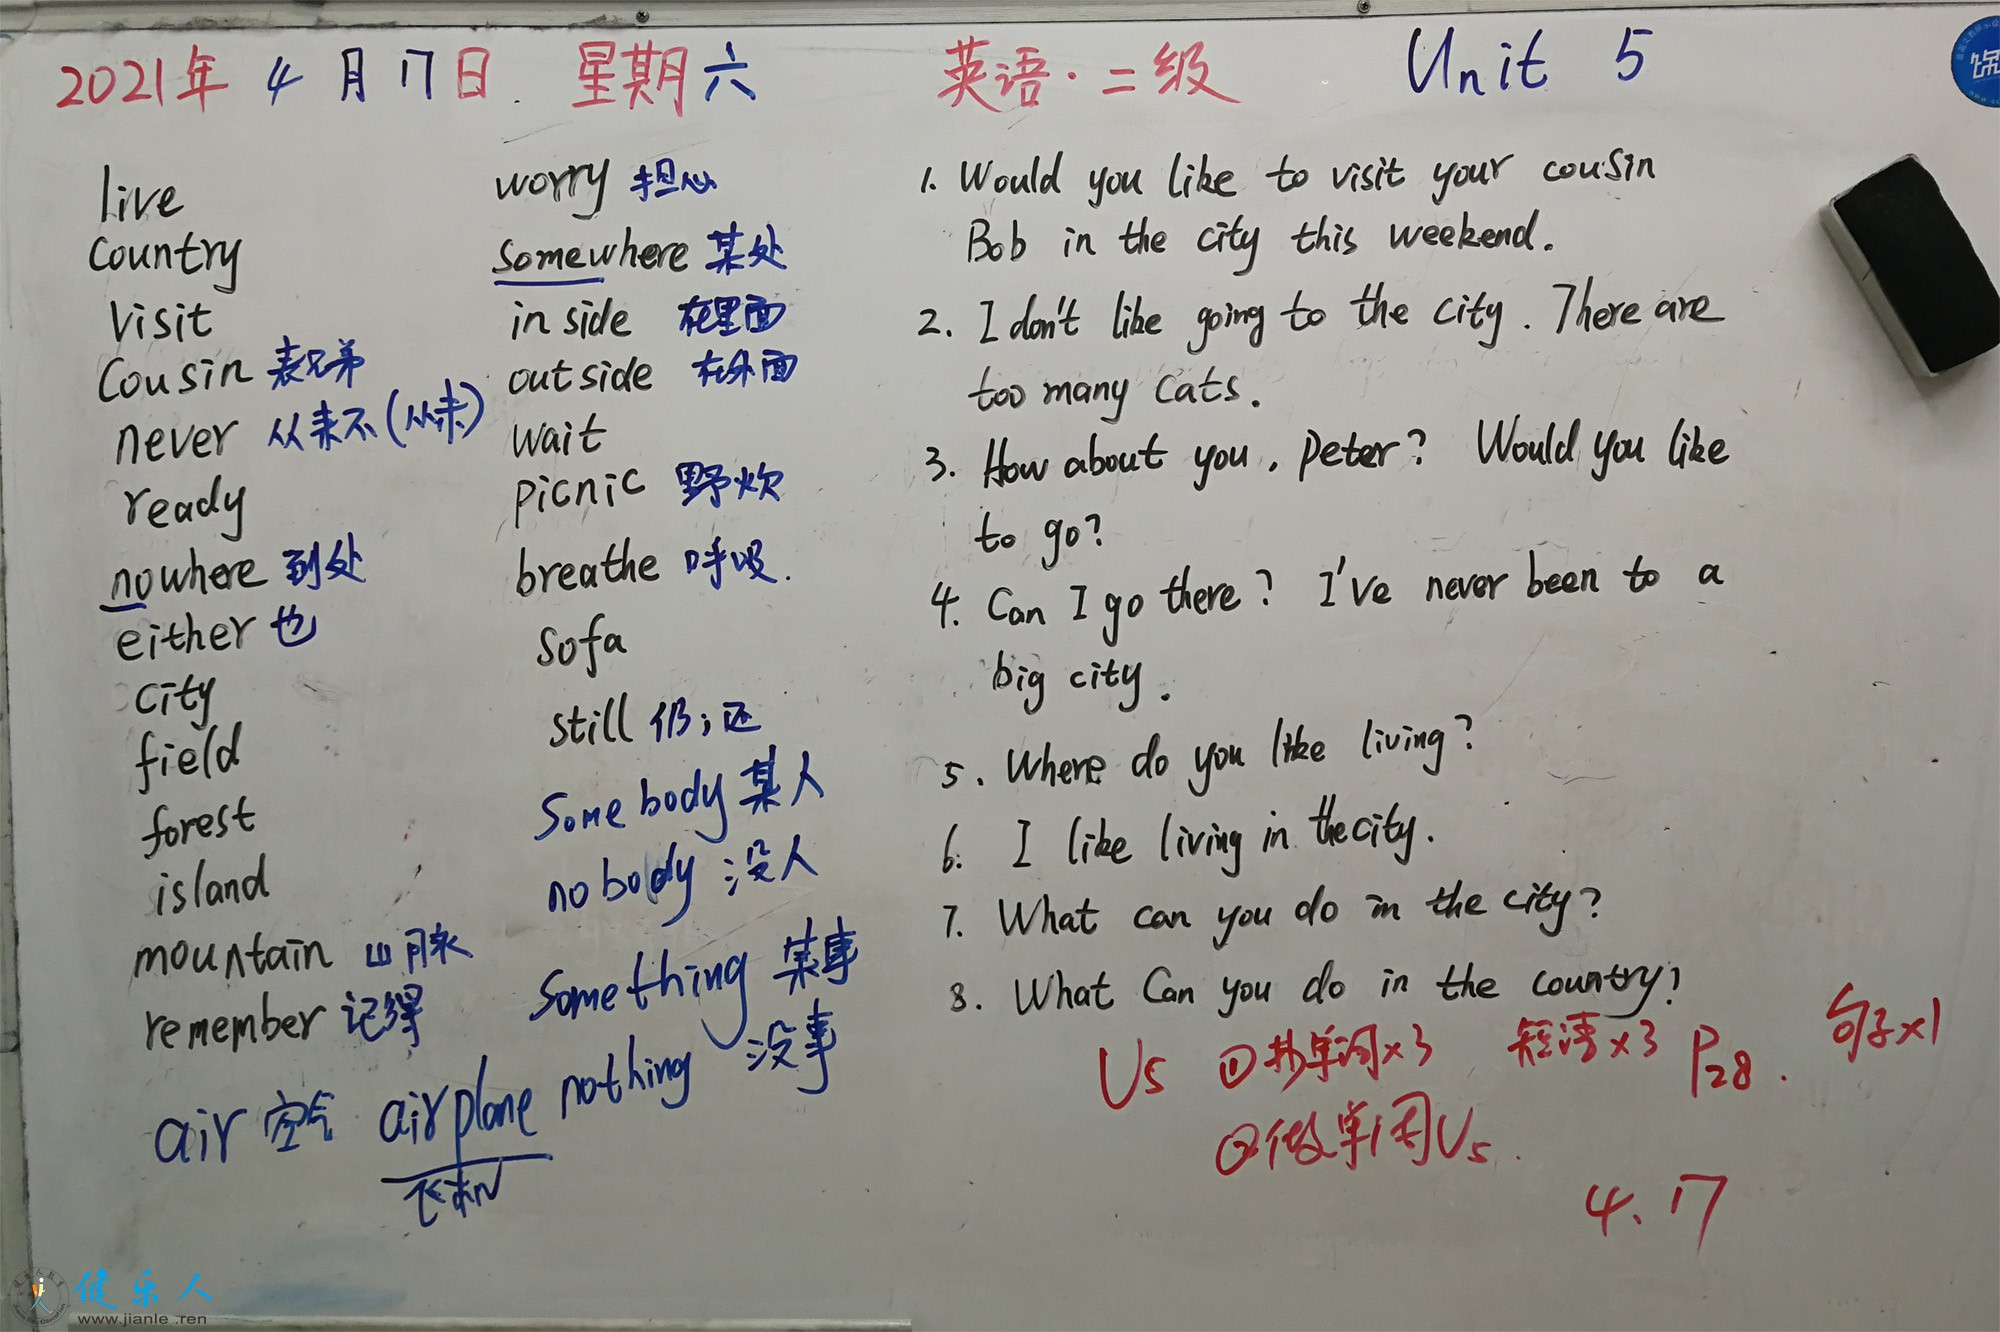 2021年 4月17日 星期六 英语·二级 Unit 5
live
country
visit
cousin 表兄弟
never 从来不(从未)
ready
nowhere 到处
either 也
city
field
forest
island
mountain 山脉
remember 记得
air 空气 airplane
飞机
worry 担心
somewhere 某处
inside 在里面
outside 在外面
wait
picnic 野炊
breathe 呼吸.
sofa
still 仍;还
somebody 某人
nobody 没人
something 某事
nothing 没事
1. Would you like to visit your cousin
Bob in the city this weekend.
2. I don't like going to the city. There are
too many cats.
3. How about you, Peter? Would you like
to go?
4. Can I go there? I've never been to a
big city.
5. Where do you like living?
6. I like living in the city.
7. What can you do in the city?
8. What can you do in the country?
U5 ①抄单词×3 短语×3 P28. 句子×1
②做单词U5.
4.17
健乐人
www.jianle.ren